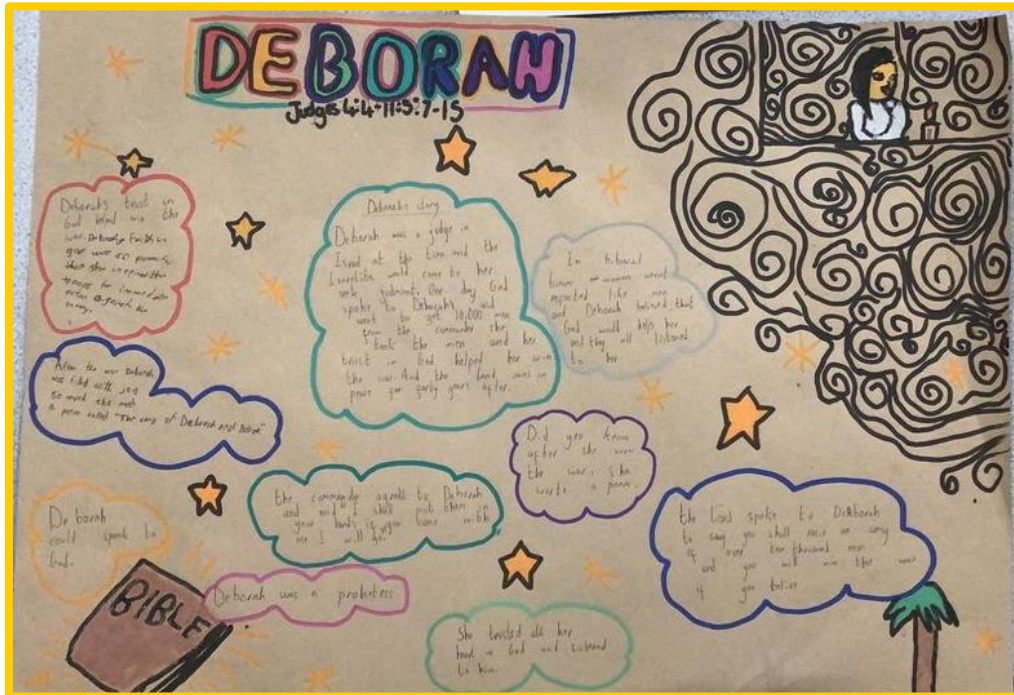 DEBORAH
Judges 4:4-11:5:7-15
Deborah's trust in
God helped win the
war. Deborah's faith in
god was so
that she inspired the
troops for immediate
action against the
enemy.
Deborah's story
Deborah was a judge in
Israel at the time and the
Israelites would come to her
seek judgment. One day God
spoke to Deborah and
went to get 10,000 men
from the commander she
took the men and her
trust in God helped her win
the war. And the land was in
peace for forty years after.
In
times women weren't
respected like men
and Deborah believed that
God would help her
and they all listened
to her
After the war Deborah
was filled with joy
so much she
a poem called "The song of Deborah and Barak"
Did you know
after she won
the war, she
wrote a poem.
Deborah
could speak to
God.
the commander agrees to Deborah
and said "I shall put them in
your hands if you come with
me I will go.
the Lord spoke to Deborah
to say you shall raise an army
of over ten thousand men
and you will win the war
if you believe
BIBLE
Deborah was a prohitess
She trusted all her
heart in God and listened
to him.